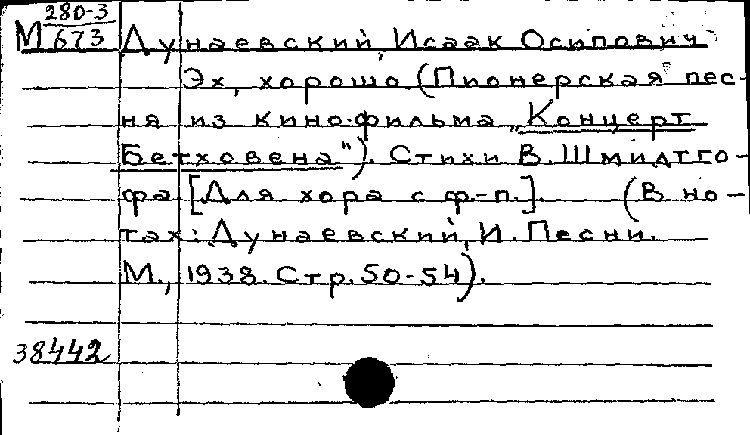 280-3
М 673 Дунаевский, Исаак Осипович
Эх, хорошо. (Пионерская пес-
ня из кинофильма „Концерт
Бетховена"). Стихи В. Шмидтго-
фа [Для хора с ф.-п.]. (В но-
тах: Дунаевский, И. Песни.
М., 1938. Стр. 50-54).
38442